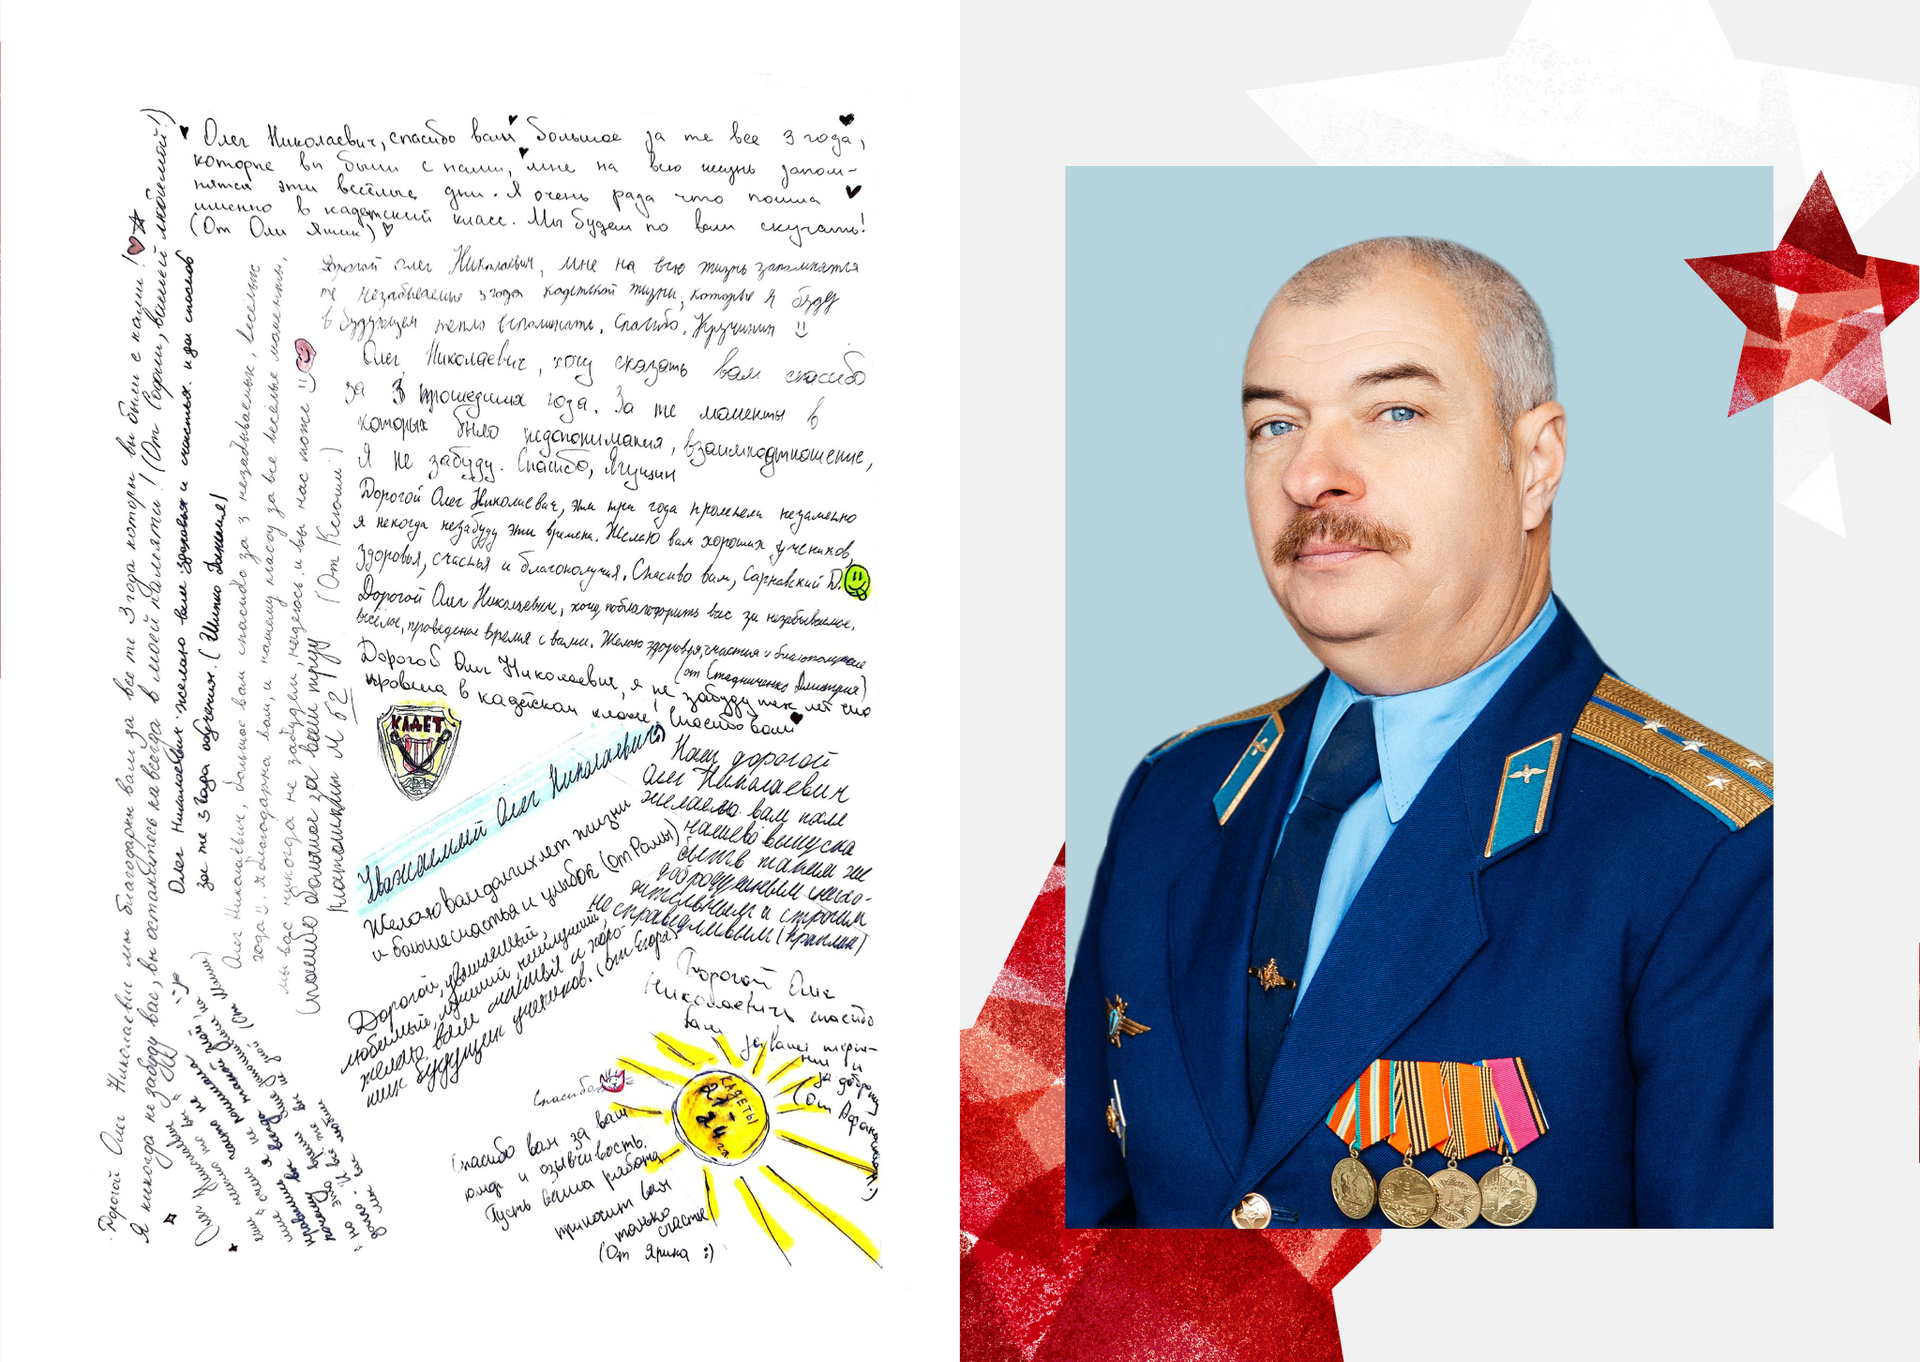 Олег Николаевич, спасибо вам большое за те все 3 года,
которые вы были с нами, мне на всю жизнь запом-
нятся эти весёлые дни. Я очень рада что пошла
именно в кадетский класс. Мы будем по вам скучать!
(От Оли Яшик)
Дорогой олег Николаевич, мне на всю жизнь запомнятся
те незабываемые 3 года кадетской жизни, которые я буду
в будующем тепло вспоминать. Спасибо, Кручинин
Олег Николаевич, хочу сказать вам спасибо
за 3 прошедших года. За те моменты в
которых было недопонимания, взаимоотношение,
Я не забуду. Спасибо, Ягущин
Дорогой Олег Николаевич, эти три года пролетели незаметно
я некогда незабуду эти времена. Желаю вам хороших учеников,
здоровья, счастья и благополучия. Спасибо вам, Сарнавский D.
Дорогой Олег Николаевич, хочу поблагодорить вас за незабываемое,
весёлое, проведеное время с вами. Желаю здоровья, счастия и благополучие
(от Стадниченко Дмитрия)
Дорогой Олег Николаевич, я не забуду тех лет что
провела в кадетском классе, спасибо вам
КАДЕТ
Уважаемый Олег Николаевич,
Желаю вам долгих лет жизни
и больше счастья и улыбок (От Ромы)
Наш дорогой
Олег Николаевич
желаею вам поле
нашево выпуска
быть таким же
добродушным
и строгим
но справедливым
Дорогой, уважаемый,
любимый, лучший
желаю вам счастья и хоро-
ших будущих учеников. (От Егора)
Дорогой Олег
Николаевич спасибо
вам
за ваше терпе-
ние и
за доброту
(От
Спасибо
КАДЕТЫ
21-
24 гг
Спасибо вам за вашу
юмор и отзывчивость.
Пусть ваша работа
приносит вам
только
счастье
(От Ярика :)
Дорогой Олег Николаевич мы благодарны вам за все те 3 года которы вы были с нами!
Я никогда не забуду вас, вы останитесь навсегда в моей памяти! (От Софии, вашей любимой!)
Олег Николаевич желаю вам здоровья и счастья. и да спасибо
за те 3 года обучения. (Шипко Даниил)
Олег Николаевич, большое вам спасибо за 3 незабываемые, весёлые
года. Я благодарна вам, и нашему классу за все весёлые моменты,
мы вас никогда не забудем, надеюсь и вы нас тоже
(От Ксюши)
Спасибо большое за ваш труд
Плотошкин М 62